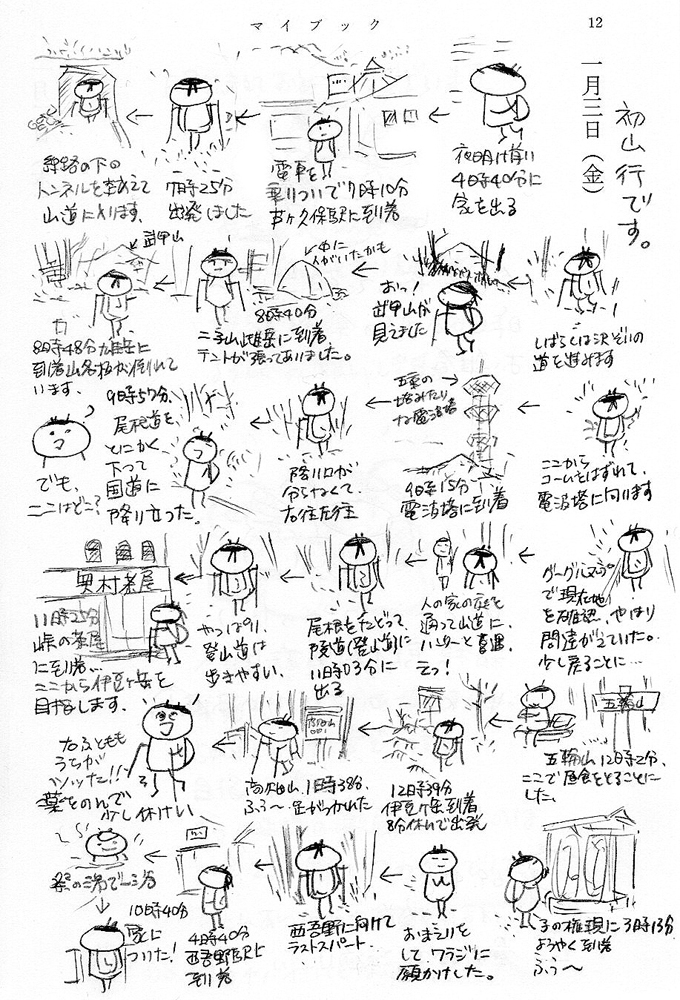 マイブック
12
一月三日（金）
初山行です。
夜明け前い
4時40分に
家を出る
電車を
乗りついで7時10分
芦ヶ久保駅に到着
7時25分
出発しました
線路の下の
トンネルを
山道に入ります。
しばらくは沢ぞいの
道を進みます
おっ!
武甲山が
見えました
中に
人がいたかも
8時40分
二子山雌岳に到着
テントが張ってありました。
武甲山
8時48分雄岳に
到着山名板が倒れて
います。
ここから
コースをはずれて、
電波塔に向います
五重の
塔みたい
な電波塔
9時15分
電波塔に到着
降り口が
分らなくて
右往左往
9時57分、
尾根道を、
とにかく
下って
国道に
降り立った。
?
でも、
ここはどこ?
グーグルマップ
で現在地
を確認、やはり
間違がえていた。
少し戻ることに…
人の家の庭を
通って山道に、
ハンターと遭遇、
えっ!
尾根をたどって、
11時03分に
出る
やっぱり、
登山道は
歩きやすい。
奥村茶屋
11時25分
峠の茶屋
に到着…
ここから伊豆ヶ岳を
目指します。
五輪山
五輪山12時2分、
ここで昼食をとることに
した。
12時39分
伊豆ヶ岳到着
8分休んで出発
高畑山、1時38分、
ふぅ〜 足がつかれた
左ふともも
うちが
ツッた!!
薬をのんで
少し休けい
子の権現に3時13分
ようやく到着
ふぅ〜
おまえりを
して、ワラジに
願かけした。
西吾野に向けて
ラストスパート、
4時40分
西吾野駅に
到着
10時40分
家に
ついた!